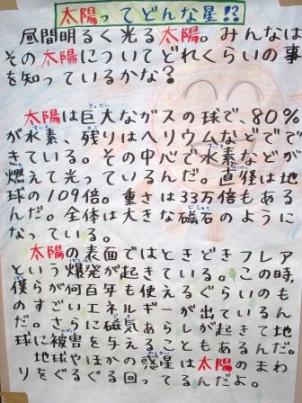 太陽ってどんな星!?
昼間明るく光る太陽。みんなは
その太陽についてどれくらいの事
を知っているかな?
太陽は巨大なガスの球で、80%
が水素、残りはヘリウムなどでで
きている。その中心で水素などが
燃えて光っているんだ。直径は地
球の109倍。重さは33万倍もある
んだ。全体は大きな磁石のように
なっている。
太陽の表面ではときどきフレア
という爆発が起きている。この時、
僕らが何百年も使えるぐらいのも
のすごいエネルギーが出ているん
だ。さらに磁気あらしが起きて地
球に被害を与えることもあるんだ。
地球やほかの惑星は太陽のまわ
りをぐるぐる回ってるんだよ。